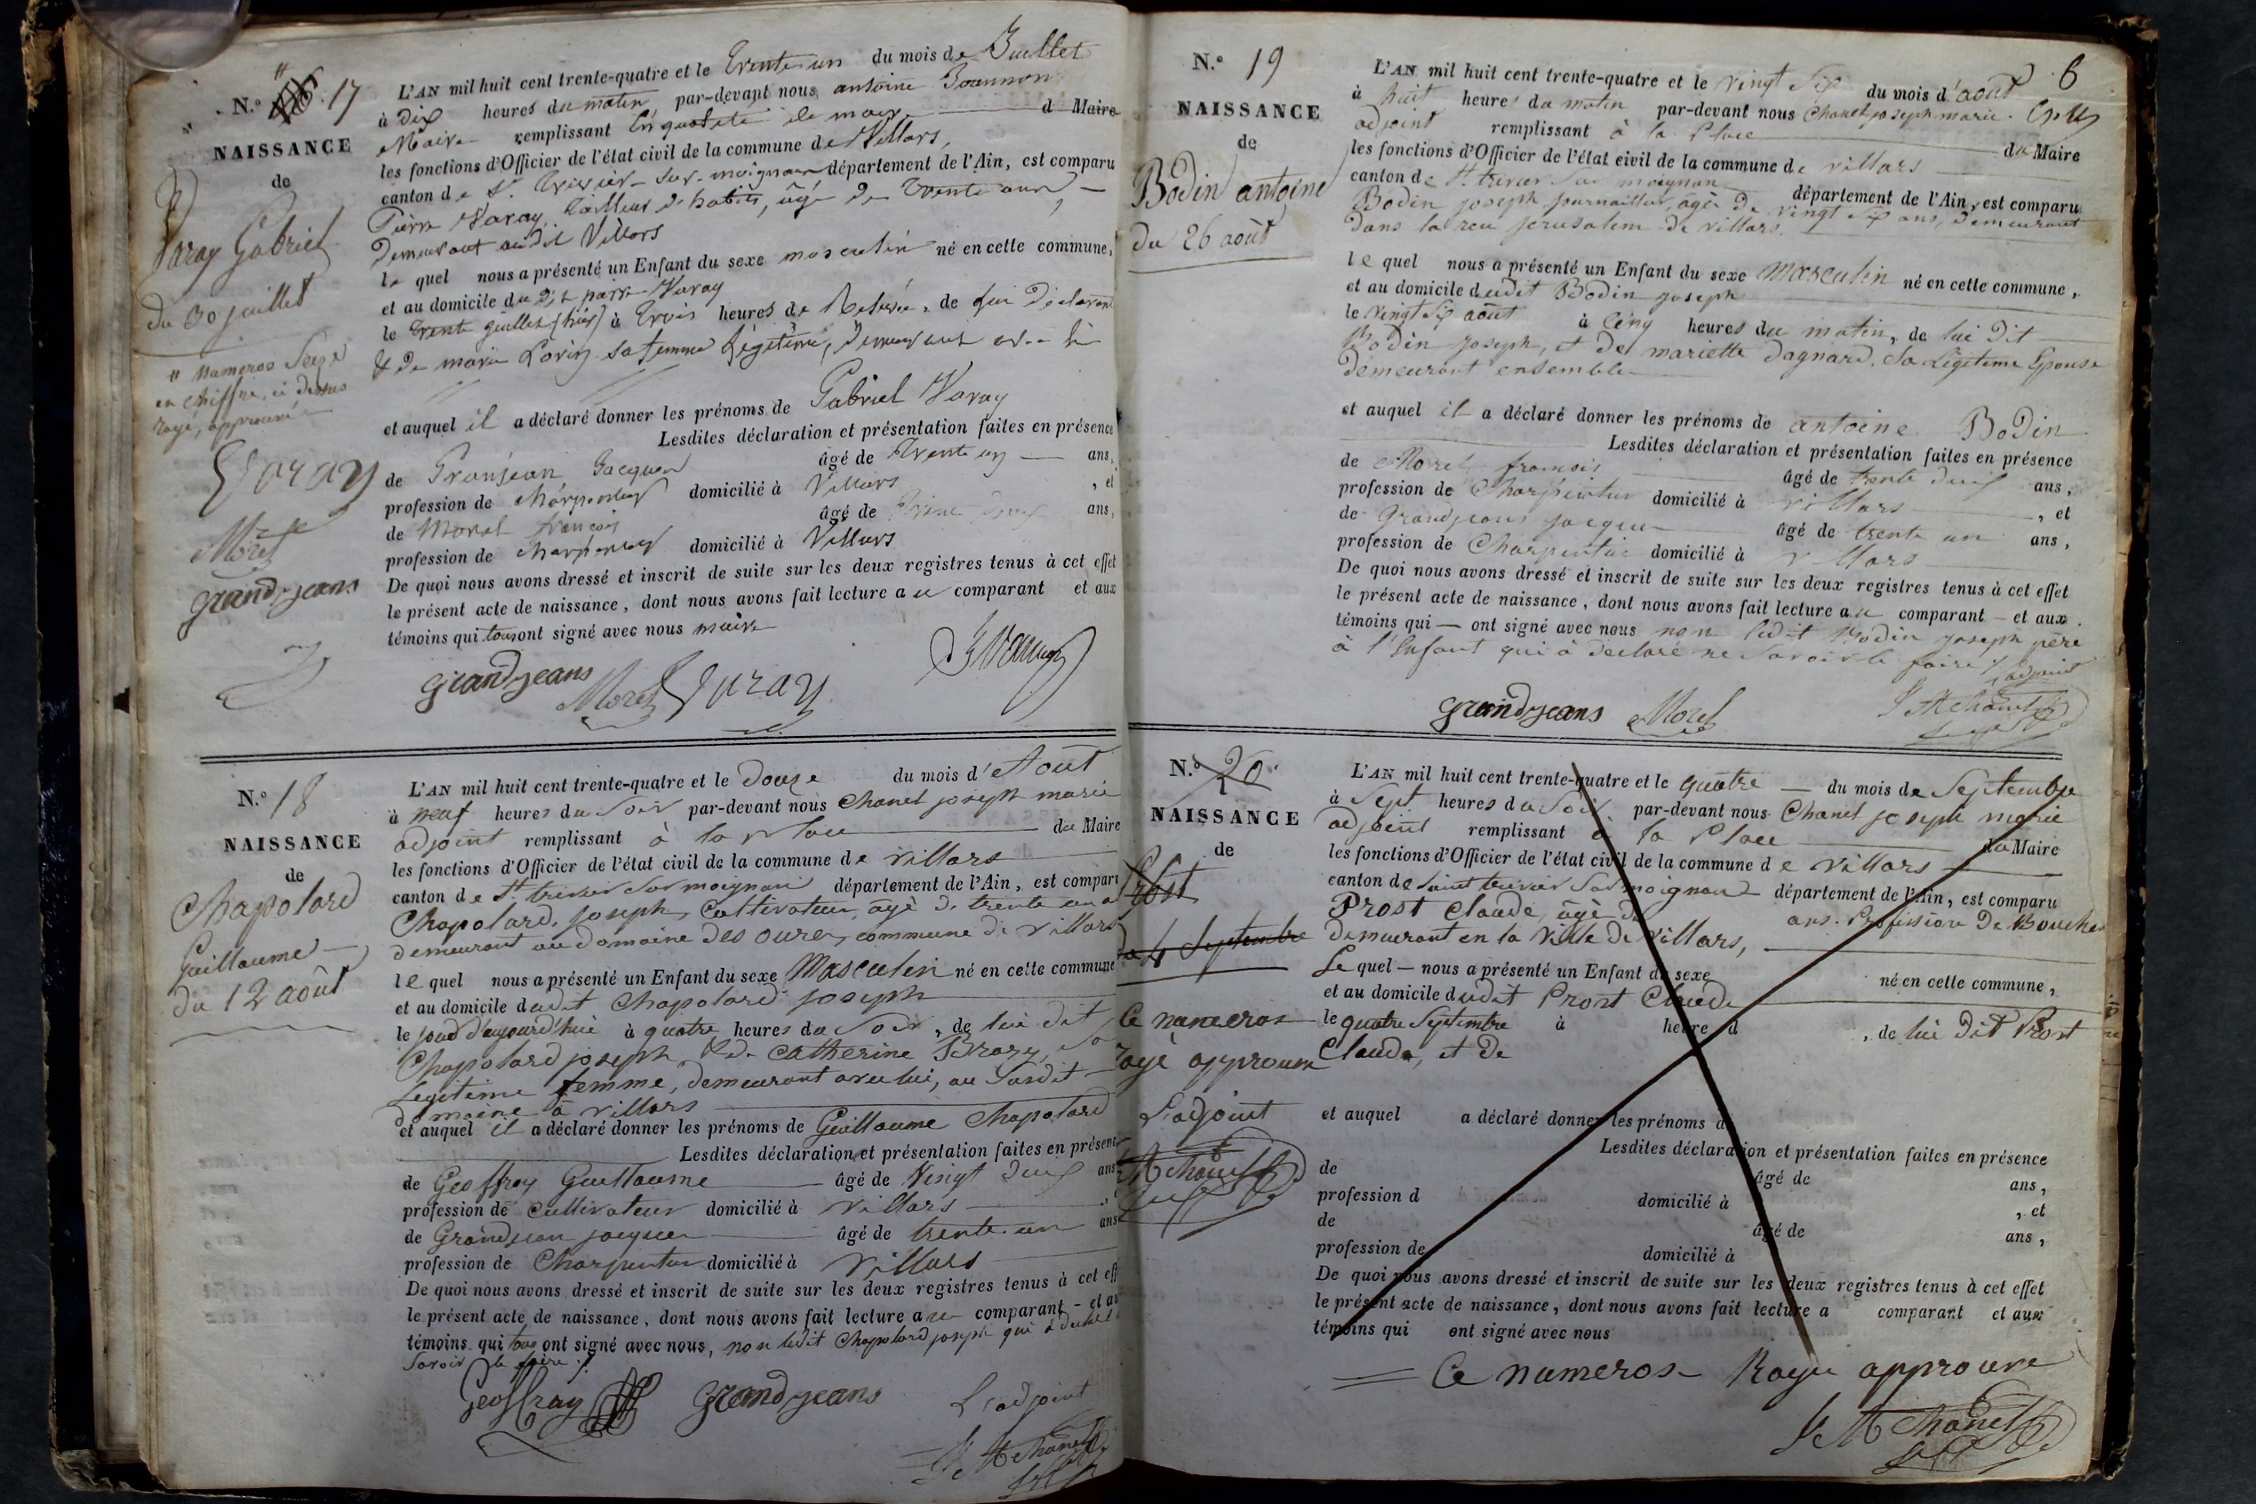 N.º 17
NAISSANCE
de
Varay Gabriel
du 30 juillet
numeros Seize
en chiffre, ci dessus
rayé, approuvé
Varay
Morel
grandjeans
L'AN mil huit cent trente-quatre et le trente un du mois de Juillet
à dix heures du matin par-devant nous antoine
Maire remplissant en qualité de maire du Maire
les fonctions d'Officier de l'état civil de la commune de Villars,
canton de St trivier-sur-moignans département de l'Ain, est comparu
Pierre Varay, tailleur d'habits, âgé de trente ans,
demeurant audit Villars
le quel nous a présenté un Enfant du sexe masculin né en cette commune,
et au domicile du dit pierre Varay
le trente juillet (hier) à trois heures de de lui déclarant
& de marie sa femme légitime, demeurant
et auquel il a déclaré donner les prénoms de Gabriel Varay
Lesdites déclaration et présentation faites en présence
de Granjean Jacques âgé de trente un ans,
profession de charpentier domicilié à Villars , et
de Morel françois âgé de trente deux ans,
profession de charpentier domicilié à Villars
De quoi nous avons dressé et inscrit de suite sur les deux registres tenus à cet effet
le présent acte de naissance, dont nous avons fait lecture au comparant et aux
témoins qui tous ont signé avec nous maire
grandjeans Morel Varay
N.º 18
NAISSANCE
de
Chapolard
Guillaume
du 12 août
L'AN mil huit cent trente-quatre et le douze du mois d'Aout
à neuf heures du soir par-devant nous Chanel joseph marie
adjoint remplissant à la place du Maire
les fonctions d'Officier de l'état civil de la commune de villars
canton de St trivier sur moignans département de l'Ain, est comparu
Chapolard, joseph, Cultivateur, âgé de trente un
demeurant au domaine des oures, commune de villars
le quel nous a présenté un Enfant du sexe Masculin né en cette commune
et au domicile dudit Chapolard joseph
le jour d'aujourd'hui à quatre heures du soir, de lui dit
Chapolard joseph, & de Catherine Brary, sa
Legitime femme, demeurant avec lui, au susdit
domaine à villars
et auquel il a déclaré donner les prénoms de Guillaume Chapolard
Lesdites déclaration et présentation faites en présence
de Geoffray Guillaume âgé de vingt deux ans
profession de cultivateur domicilié à villars
de Grandjean jacques âgé de trente-un ans
profession de Charpentier domicilié à villars
De quoi nous avons dressé et inscrit de suite sur les deux registres tenus à cet eff
le présent acte de naissance, dont nous avons fait lecture au comparant - et au
témoins qui tous ont signé avec nous, non ledit Chapolard joseph qui a déclaré
savoir le faire
Geoffray grandjeans L'adjoint
J M Chanel
N.º 19
NAISSANCE
de
Bodin antoine
du 26 août
6
L'AN mil huit cent trente-quatre et le vingt Six du mois d'août
à huit heures du matin par-devant nous Chanel joseph marie.
adjoint remplissant à la place du Maire
les fonctions d'Officier de l'état civil de la commune de villars
canton de St trivier sur moignans département de l'Ain, est comparu
Bodin joseph journaillier, agé de vingt six ans, demeurant
dans la reu jerusalem de villars.
le quel nous a présenté un Enfant du sexe Masculin né en cette commune,
et au domicile dudit Bodin joseph
le vingt six août à Cinq heures du matin, de lui dit
Bodin joseph, et de mariette dagnard, sa Légitime Epouse
demeurant ensemble
et auquel il a déclaré donner les prénoms de antoine Bodin
Lesdites déclaration et présentation faites en présence
de Morel françois âgé de trente deux ans,
profession de Charpentier domicilié à villars , et
de Grandjeans jacques âgé de trente un ans,
profession de Charpentier domicilié à villars
De quoi nous avons dressé et inscrit de suite sur les deux registres tenus à cet effet
le présent acte de naissance, dont nous avons fait lecture au comparant - et aux
témoins qui — ont signé avec nous non ledit Bodin joseph père
à l'Enfant qui à déclaré ne savoir le faire
L'adjoint
grandjeans Morel J M Chanel
N.º 20
NAISSANCE
de
Prost
du 4 Septembre
Ce numeros
rayé approuvé
L'adjoint
J M Chanel
L'AN mil huit cent trente-quatre et le quatre — du mois de Septembre
à Sept heures du soir par-devant nous Chanel joseph marie
adjoint remplissant à la place du Maire
les fonctions d'Officier de l'état civil de la commune de villars
canton de saint trivier sur moignans département de l'Ain, est comparu
Prost Claude, âgé de ans. Profession de Boucher
demeurant en la ville de villars,
Le quel — nous a présenté un Enfant du sexe né en cette commune,
et au domicile dudit Prost Claude
le quatre Septembre à heure d , de lui dit Prost
Claude, et de
et auquel a déclaré donner les prénoms d
Lesdites déclaration et présentation faites en présence
de âgé de ans,
profession d domicilié à , et
de âgé de ans,
profession de domicilié à
De quoi nous avons dressé et inscrit de suite sur les deux registres tenus à cet effet
le présent acte de naissance, dont nous avons fait lecture a comparant et aux
témoins qui ont signé avec nous
Ce numeros Rayé approuvé
J M Chanel